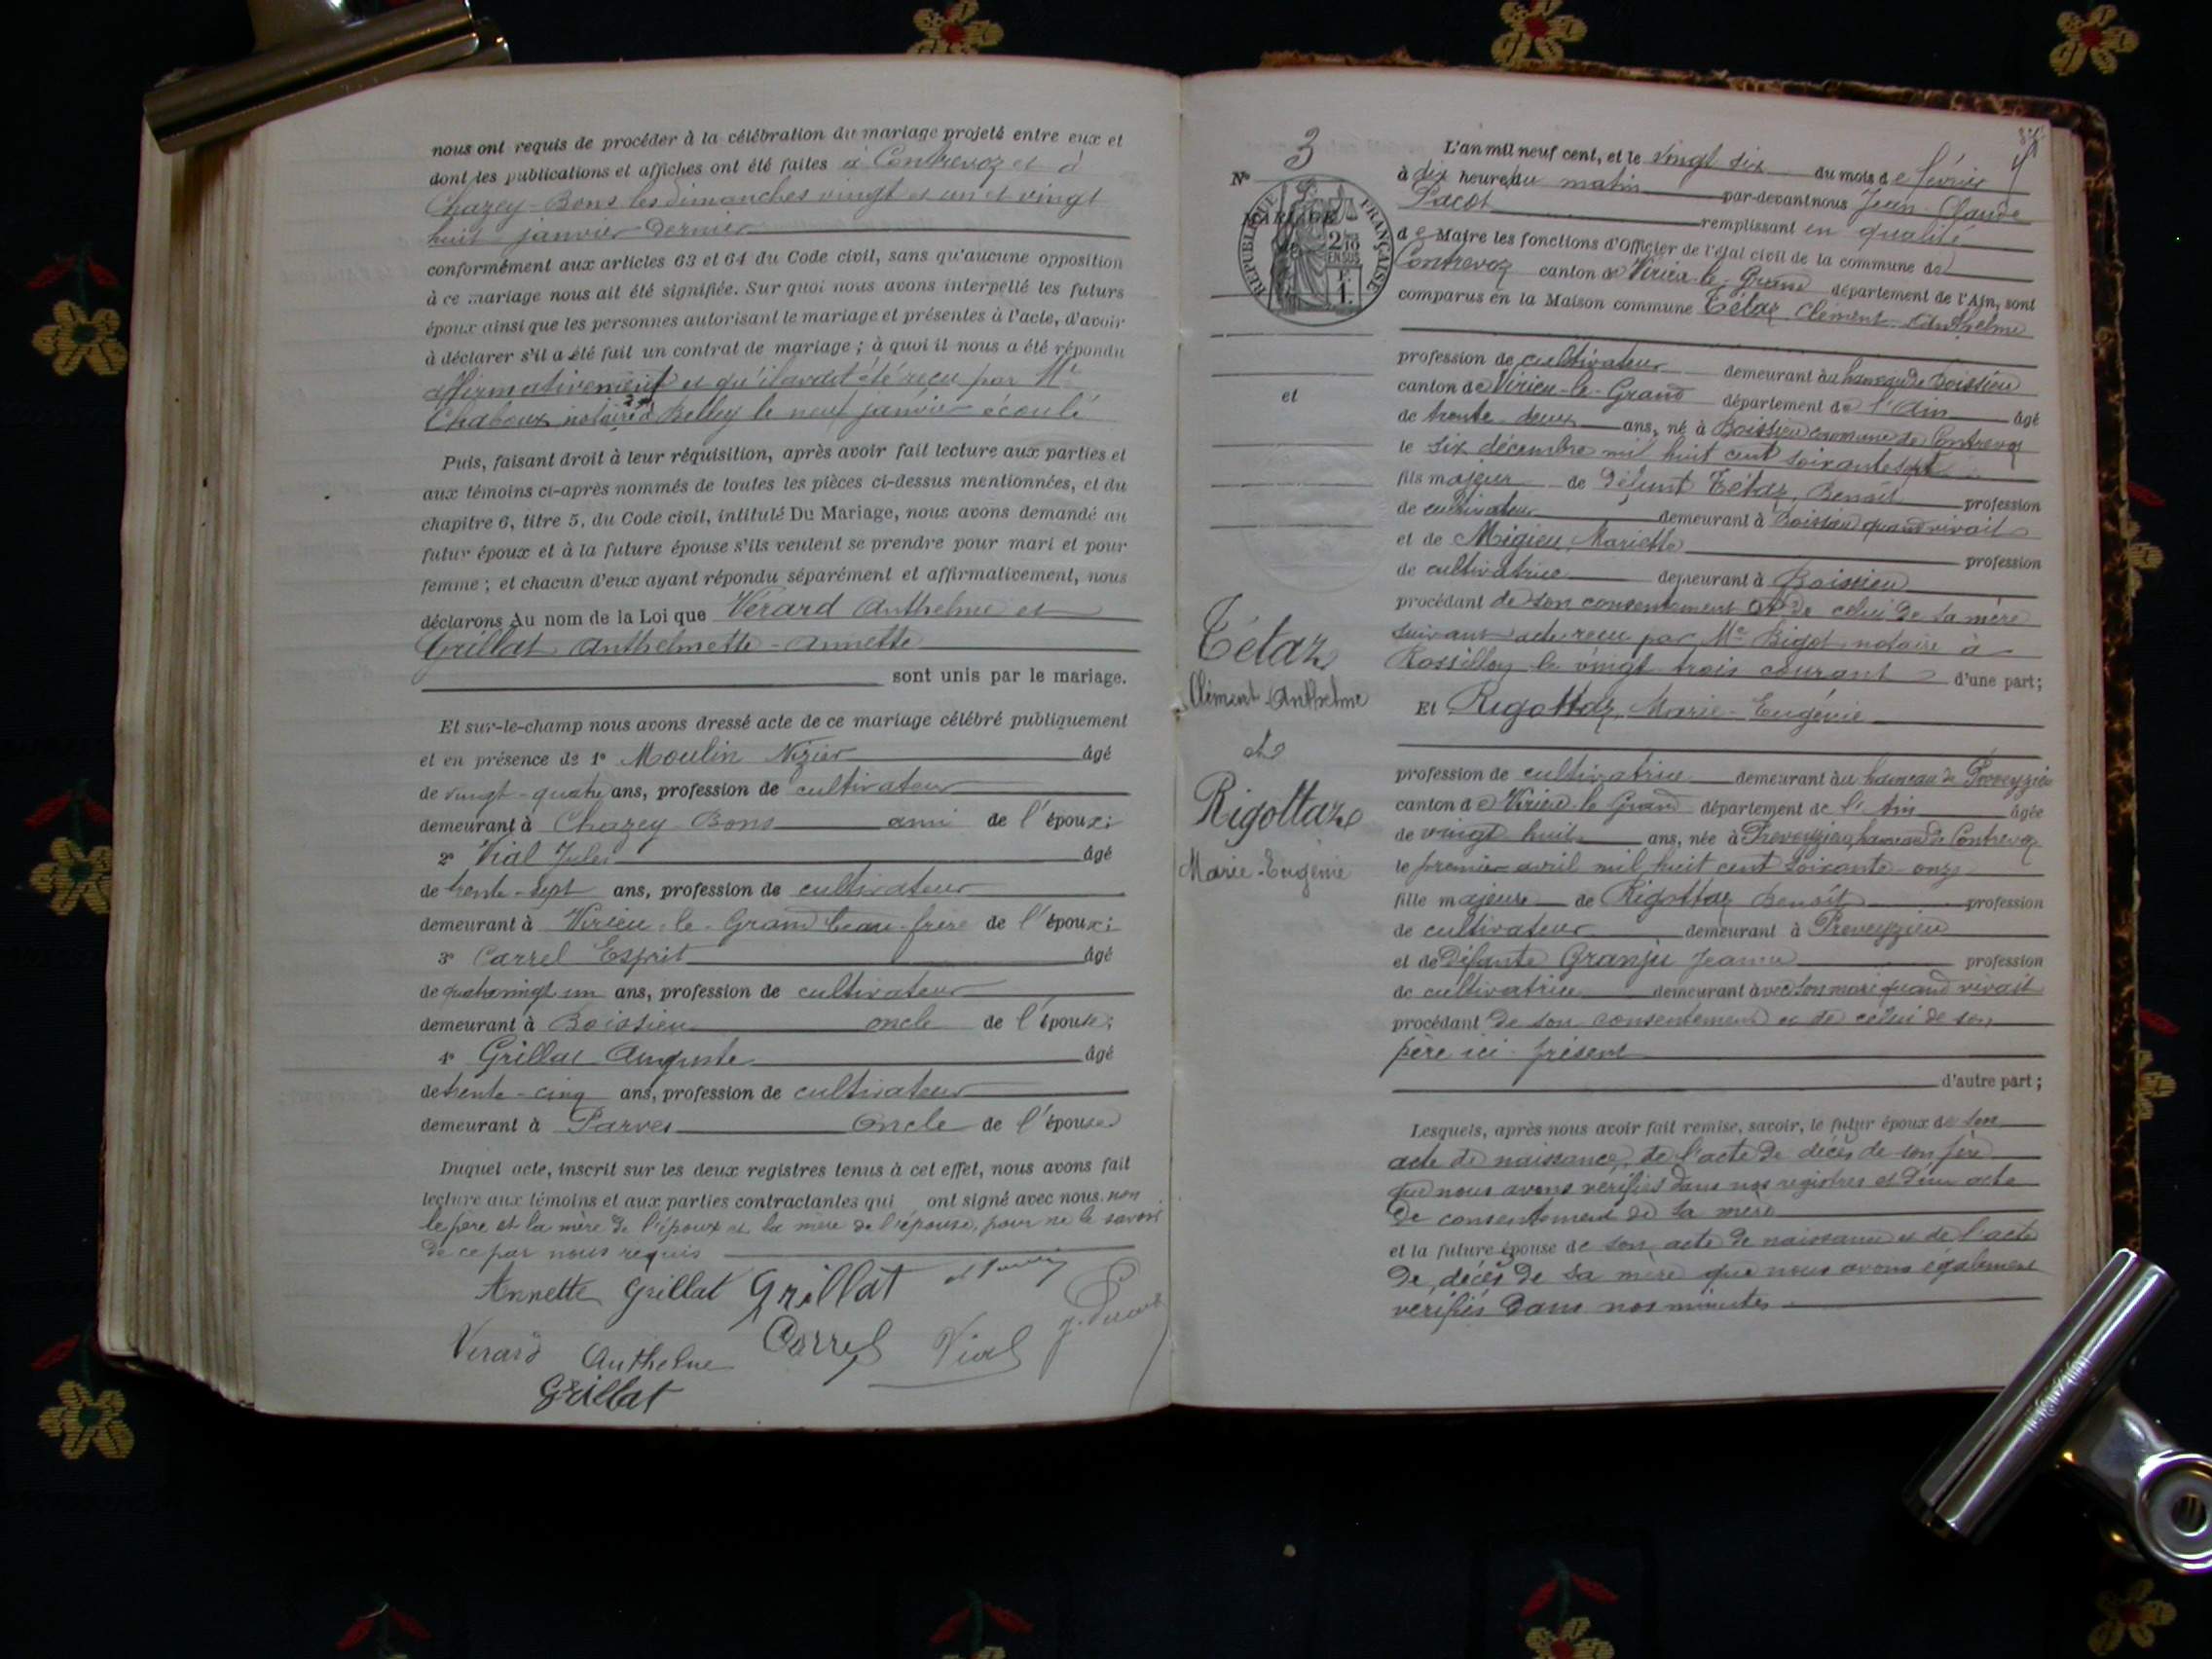 nous ont requis de procéder à la célébration du mariage projeté entre eux et
dont les publications et affiches ont été faites à Contrevoz et à
Chazey-Bons les dimanches vingt et un et vingt
huit janvier dernier
conformément aux articles 63 et 64 du Code civil, sans qu'aucune opposition
à ce mariage nous ait été signifiée. Sur quoi nous avons interpellé les futurs
époux ainsi que les personnes autorisant le mariage et présentes à l'acte, d'avoir
à déclarer s'il a été fait un contrat de mariage ; à quoi il nous a été répondu
affirmativement et qu'il avait été reçu par Me
Chaboux notaire à Belley le neuf janvier écoulé
Puis, faisant droit à leur réquisition, après avoir fait lecture aux parties et
aux témoins ci-après nommés de toutes les pièces ci-dessus mentionnées, et du
chapitre 6, titre 5, du Code civil, intitulé Du Mariage, nous avons demandé au
futur époux et à la future épouse s'ils veulent se prendre pour mari et pour
femme ; et chacun d'eux ayant répondu séparément et affirmativement, nous
déclarons Au nom de la Loi que Vérard Anthelme et
Grillat Anthelmette-Annette
sont unis par le mariage.
Et sur-le-champ nous avons dressé acte de ce mariage célébré publiquement
et en présence de 1° Moulin Nizier âgé
de vingt-quatre ans, profession de cultivateur
demeurant à Chazey Bons ami de l'époux;
2° Vial Jules âgé
de trente-sept ans, profession de cultivateur
demeurant à Virieu-le-Grand beau-frère de l'époux;
3° Carrel Esprit âgé
de quatrevingt un ans, profession de cultivateur
demeurant à Boissieu oncle de l'épouse;
4° Grillat Auguste âgé
de trente-cinq ans, profession de cultivateur
demeurant à Parves Oncle de l'épouse
Duquel acte, inscrit sur les deux registres tenus à cet effet, nous avons fait
lecture aux témoins et aux parties contractantes qui ont signé avec nous, non
le père et la mère de l'époux et la mère de l'épouse, pour ne le savoir
de ce par nous requis
Annette Grillat Grillat
Verard Anthelme Carrel Vial
Grillat
3
N°
MARIAGE
RÉPUBLIQUE FRANÇAISE
2/10
EN SUS
1 F.
et
Tétaz
Clément-Anthelme
et
Rigottaz
Marie-Eugénie
L'an mil neuf cent, et le vingt six du mois de février
à dix heures du matin par-devant nous Jean-Claude
Pacot remplissant en qualité
de Maire les fonctions d'Officier de l'état civil de la commune de
Contrevoz canton de Virieu-le-Grand département de l'Ain, sont
comparus en la Maison commune Tétaz Clément-Anthelme
profession de cultivateur demeurant au hameau de Boissieu
canton de Virieu-le-Grand département de l'Ain âgé
de trente-deux ans, né à Boissieu commune de Contrevoz
le six décembre mil huit cent soixante sept
fils majeur de défunt Tétaz, Benoît profession
de cultivateur demeurant à Boissieu quand vivait
et de Migieu Mariette profession
de cultivatrice demeurant à Boissieu
procédant de son consentement et de celui de sa mère
suivant acte reçu par Me Bigot notaire à
Rossillon le vingt trois courant d'une part;
Et Rigottaz, Marie-Eugénie
profession de cultivatrice demeurant au hameau de Preveyzieu
canton de Virieu-le-Grand département de l'Ain âgée
de vingt huit ans, née à Preveyzieu, hameau de Contrevoz
le premier avril mil huit cent soixante-onze
fille majeure de Rigottaz Benoît profession
de cultivateur demeurant à Preveyzieu
et de défunte Granju Jeanne profession
de cultivatrice demeurant avec son mari quand vivait
procédant de son consentement et de celui de son
père ici présent
d'autre part;
Lesquels, après nous avoir fait remise, savoir, le futur époux de son
acte de naissance, de l'acte de décès de son père
que nous avons vérifiés dans nos registres et d'un acte
de consentement de sa mère
et la future épouse de son acte de naissance et de l'acte
de décès de sa mère que nous avons également
vérifiés dans nos minutes